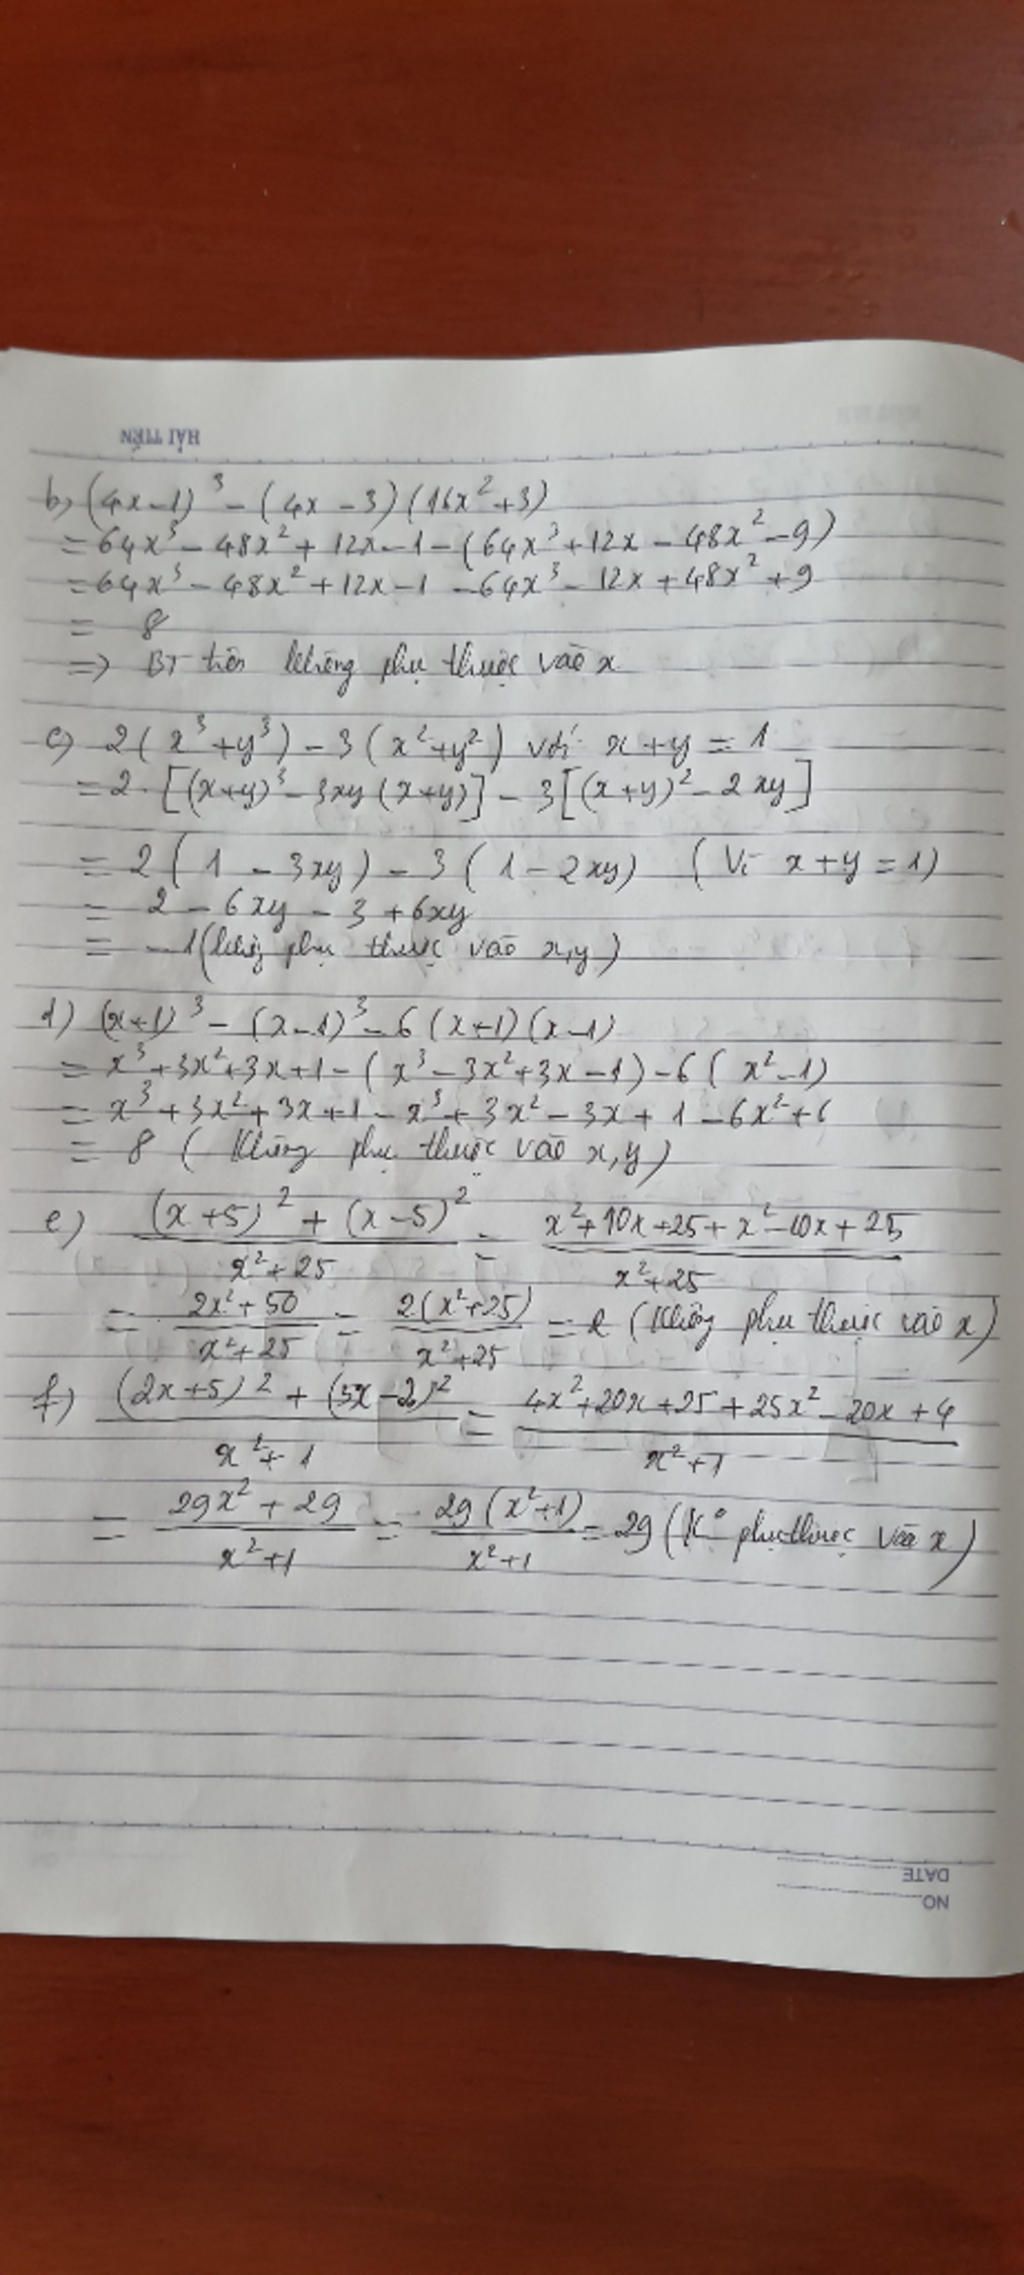 HẢI TIẾN
b) (4x-1)³ - (4x-3)(16x²+3)
= 64x³ - 48x² + 12x - 1 - (64x³ + 12x - 48x² - 9)
= 64x³ - 48x² + 12x - 1 - 64x³ - 12x + 48x² + 9
= 8
=> BT trên không phụ thuộc vào x
c) 2(x³+y³) - 3(x²+y²) với x+y = 1
= 2.[(x+y)³ - 3xy(x+y)] - 3[(x+y)² - 2xy]
= 2(1 - 3xy) - 3(1 - 2xy) (Vì x+y = 1)
= 2 - 6xy - 3 + 6xy
= -1 (không phụ thuộc vào x,y)
d) (x+1)³ - (x-1)³ - 6(x+1)(x-1)
= x³ + 3x² + 3x + 1 - (x³ - 3x² + 3x - 1) - 6(x² - 1)
= x³ + 3x² + 3x + 1 - x³ + 3x² - 3x + 1 - 6x² + 6
= 8 (Không phụ thuộc vào x,y)
e) ((x+5)² + (x-5)²)/(x²+25) = (x²+10x+25+x²-10x+25)/(x²+25)
= (2x²+50)/(x²+25) = 2(x²+25)/(x²+25) = 2 (Không phụ thuộc vào x)
f) ((2x+5)² + (5x-2)²)/(x²+1) = (4x²+20x+25+25x²-20x+4)/(x²+1)
= (29x²+29)/(x²+1) = 29(x²+1)/(x²+1) = 29 (K° phụ thuộc vào x)
DATE
NO